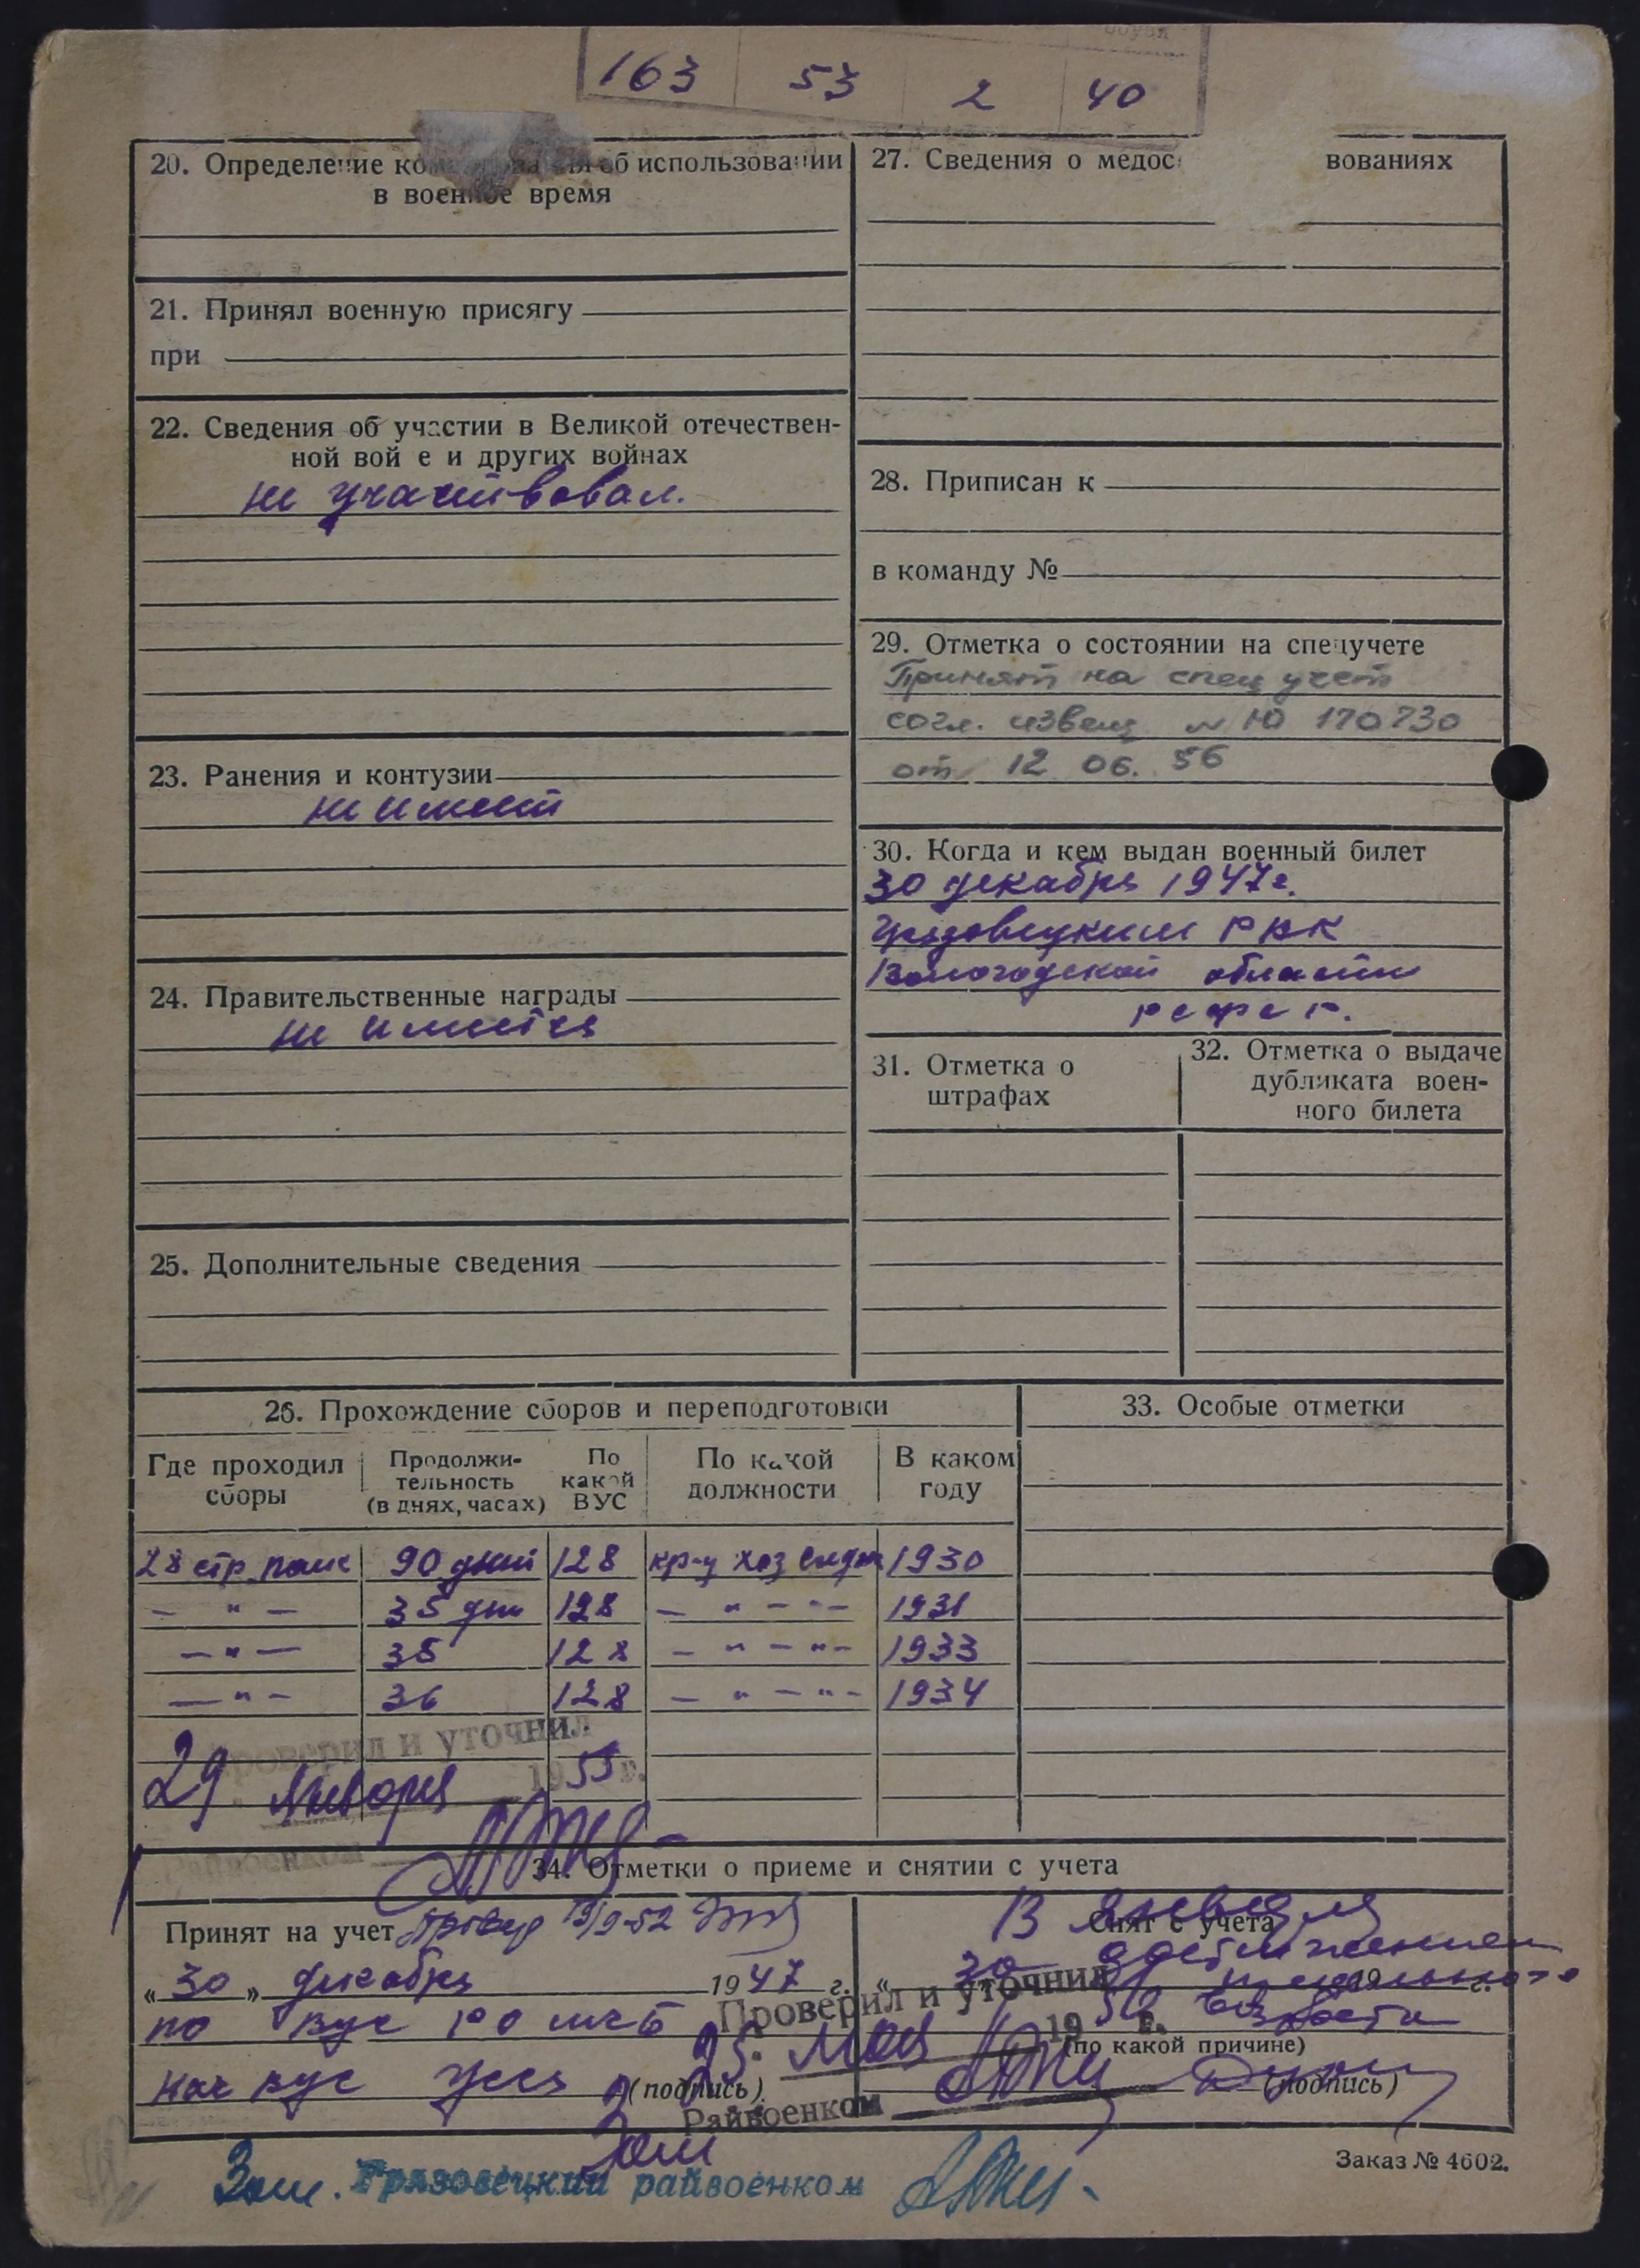 163 53 2 40
20. Определение об использовании
в военное время
21. Принял военную присягу
при
22. Сведения об участии в Великой отечествен-
ной вой е и других войнах
не участвовал.
23. Ранения и контузии
не имеет
24. Правительственные награды
не имеется
25. Дополнительные сведения
27. Сведения о медос вованиях
28. Приписан к
в команду №
29. Отметка о состоянии на спецучете
Принят на спец учет
согл. извещ № Ю 170730
от 12 06. 56
30. Когда и кем выдан военный билет
30 декабря 1947 г.
Грязовецким РВК
Вологодской области
РСФСР.
31. Отметка о
штрафах
32. Отметка о выдаче
дубликата воен-
ного билета
26. Прохождение сборов и переподготовки
Где проходил
сборы
Продолжи-
тельность
(в днях, часах)
По
какой
ВУС
По какой
должности
В каком
году
28 стр. полк 90 дней 128 хоз 1930
— " — 35 дн 128 — " — " — 1931
— " — 35 128 — " — " — 1933
— " — 36 128 — " — " — 1934
Проверил и уточнил
29 января 1955 г.
Райвоенком
33. Особые отметки
34. Отметки о приеме и снятии с учета
Принят на учет 19/9-52
„30" декабря 1947 г.
по ВУС
нач
(подпись)
Снят с учета
достижением
предельного
возраста
19 г.
(по какой причине)
(подпись)
Проверил и уточнил
25. мая 19 56 г.
Райвоенком
Зам. Грязовецкий райвоенком
Заказ № 4602.